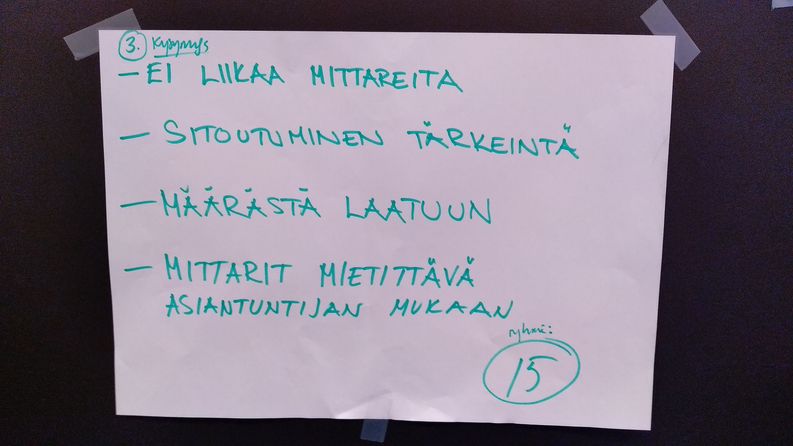 3. Kysymys
– EI LIIKAA MITTAREITA
– SITOUTUMINEN TÄRKEINTÄ
– MÄÄRÄSTÄ LAATUUN
– MITTARIT MIETITTÄVÄ
ASIANTUNTIJAN MUKAAN
ryhmä:
15